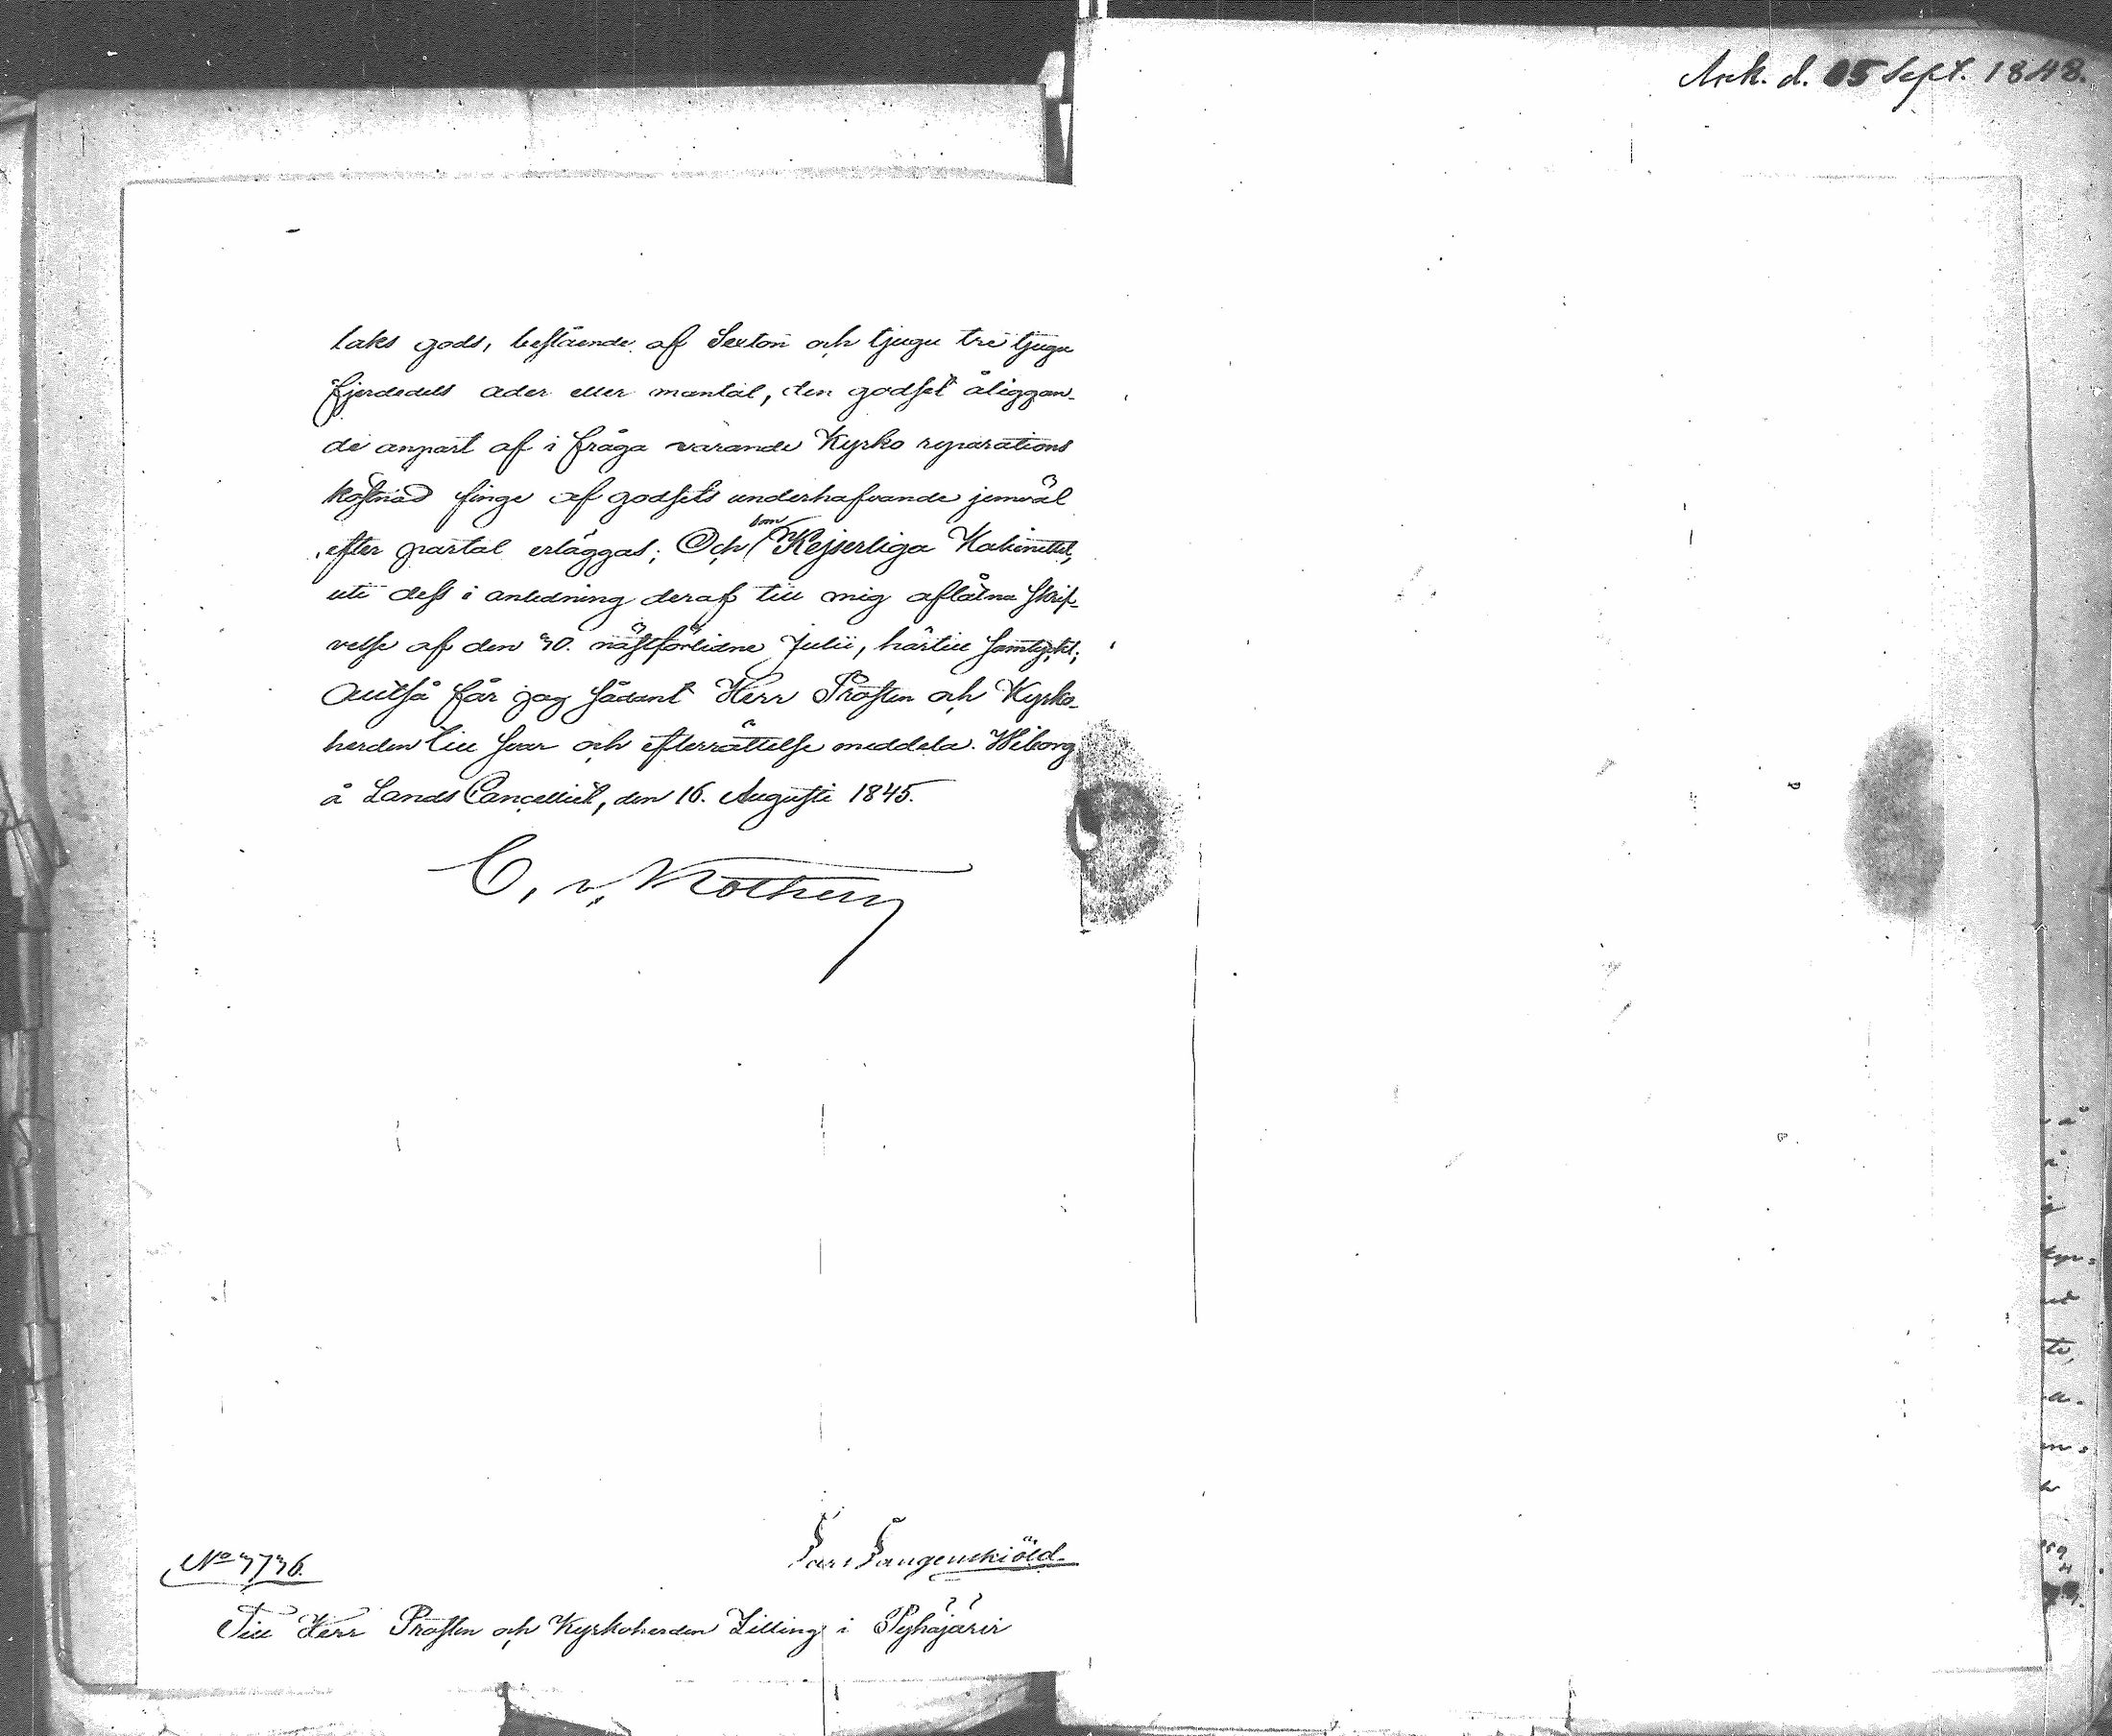 Ank. d. 05 Sept. 1848.
laks gods, bestående af Sexton och tjugu tre tjugu
fjerdedels ader eller mantal, den godset åliggan-
de anpart af i fråga varande Kyrko reparations
kostnad finge af godsets underhafvande jemväl
efter partal erläggas; Och som Kejserliga Kabinettet,
uti dess i anledning deraf till mig aflåtna skrif-
velse af den 30. nästförlidne Julii, härtill samtyckt;
Alltså får jag sådant Herr Prosten och Kyrko-
herden till svar och efterrättelse meddela. Wiborg
å Lands Cancelliet, den 16. Augusti 1845.
C. v. Kothen
Lars Langenskiöld
No 3736.
Till Herr Prosten och Kyrkoherden Zilling i Pyhäjärvi